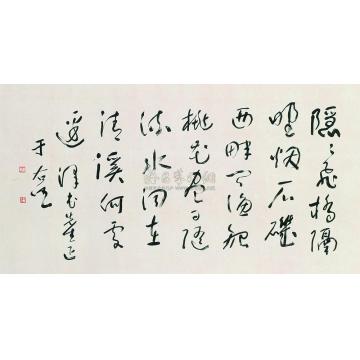 隱〻飛橋隔
野烟石磯
西畔問漁船
桃花盡日隨
流水洞在
清溪何處
邊
于右任